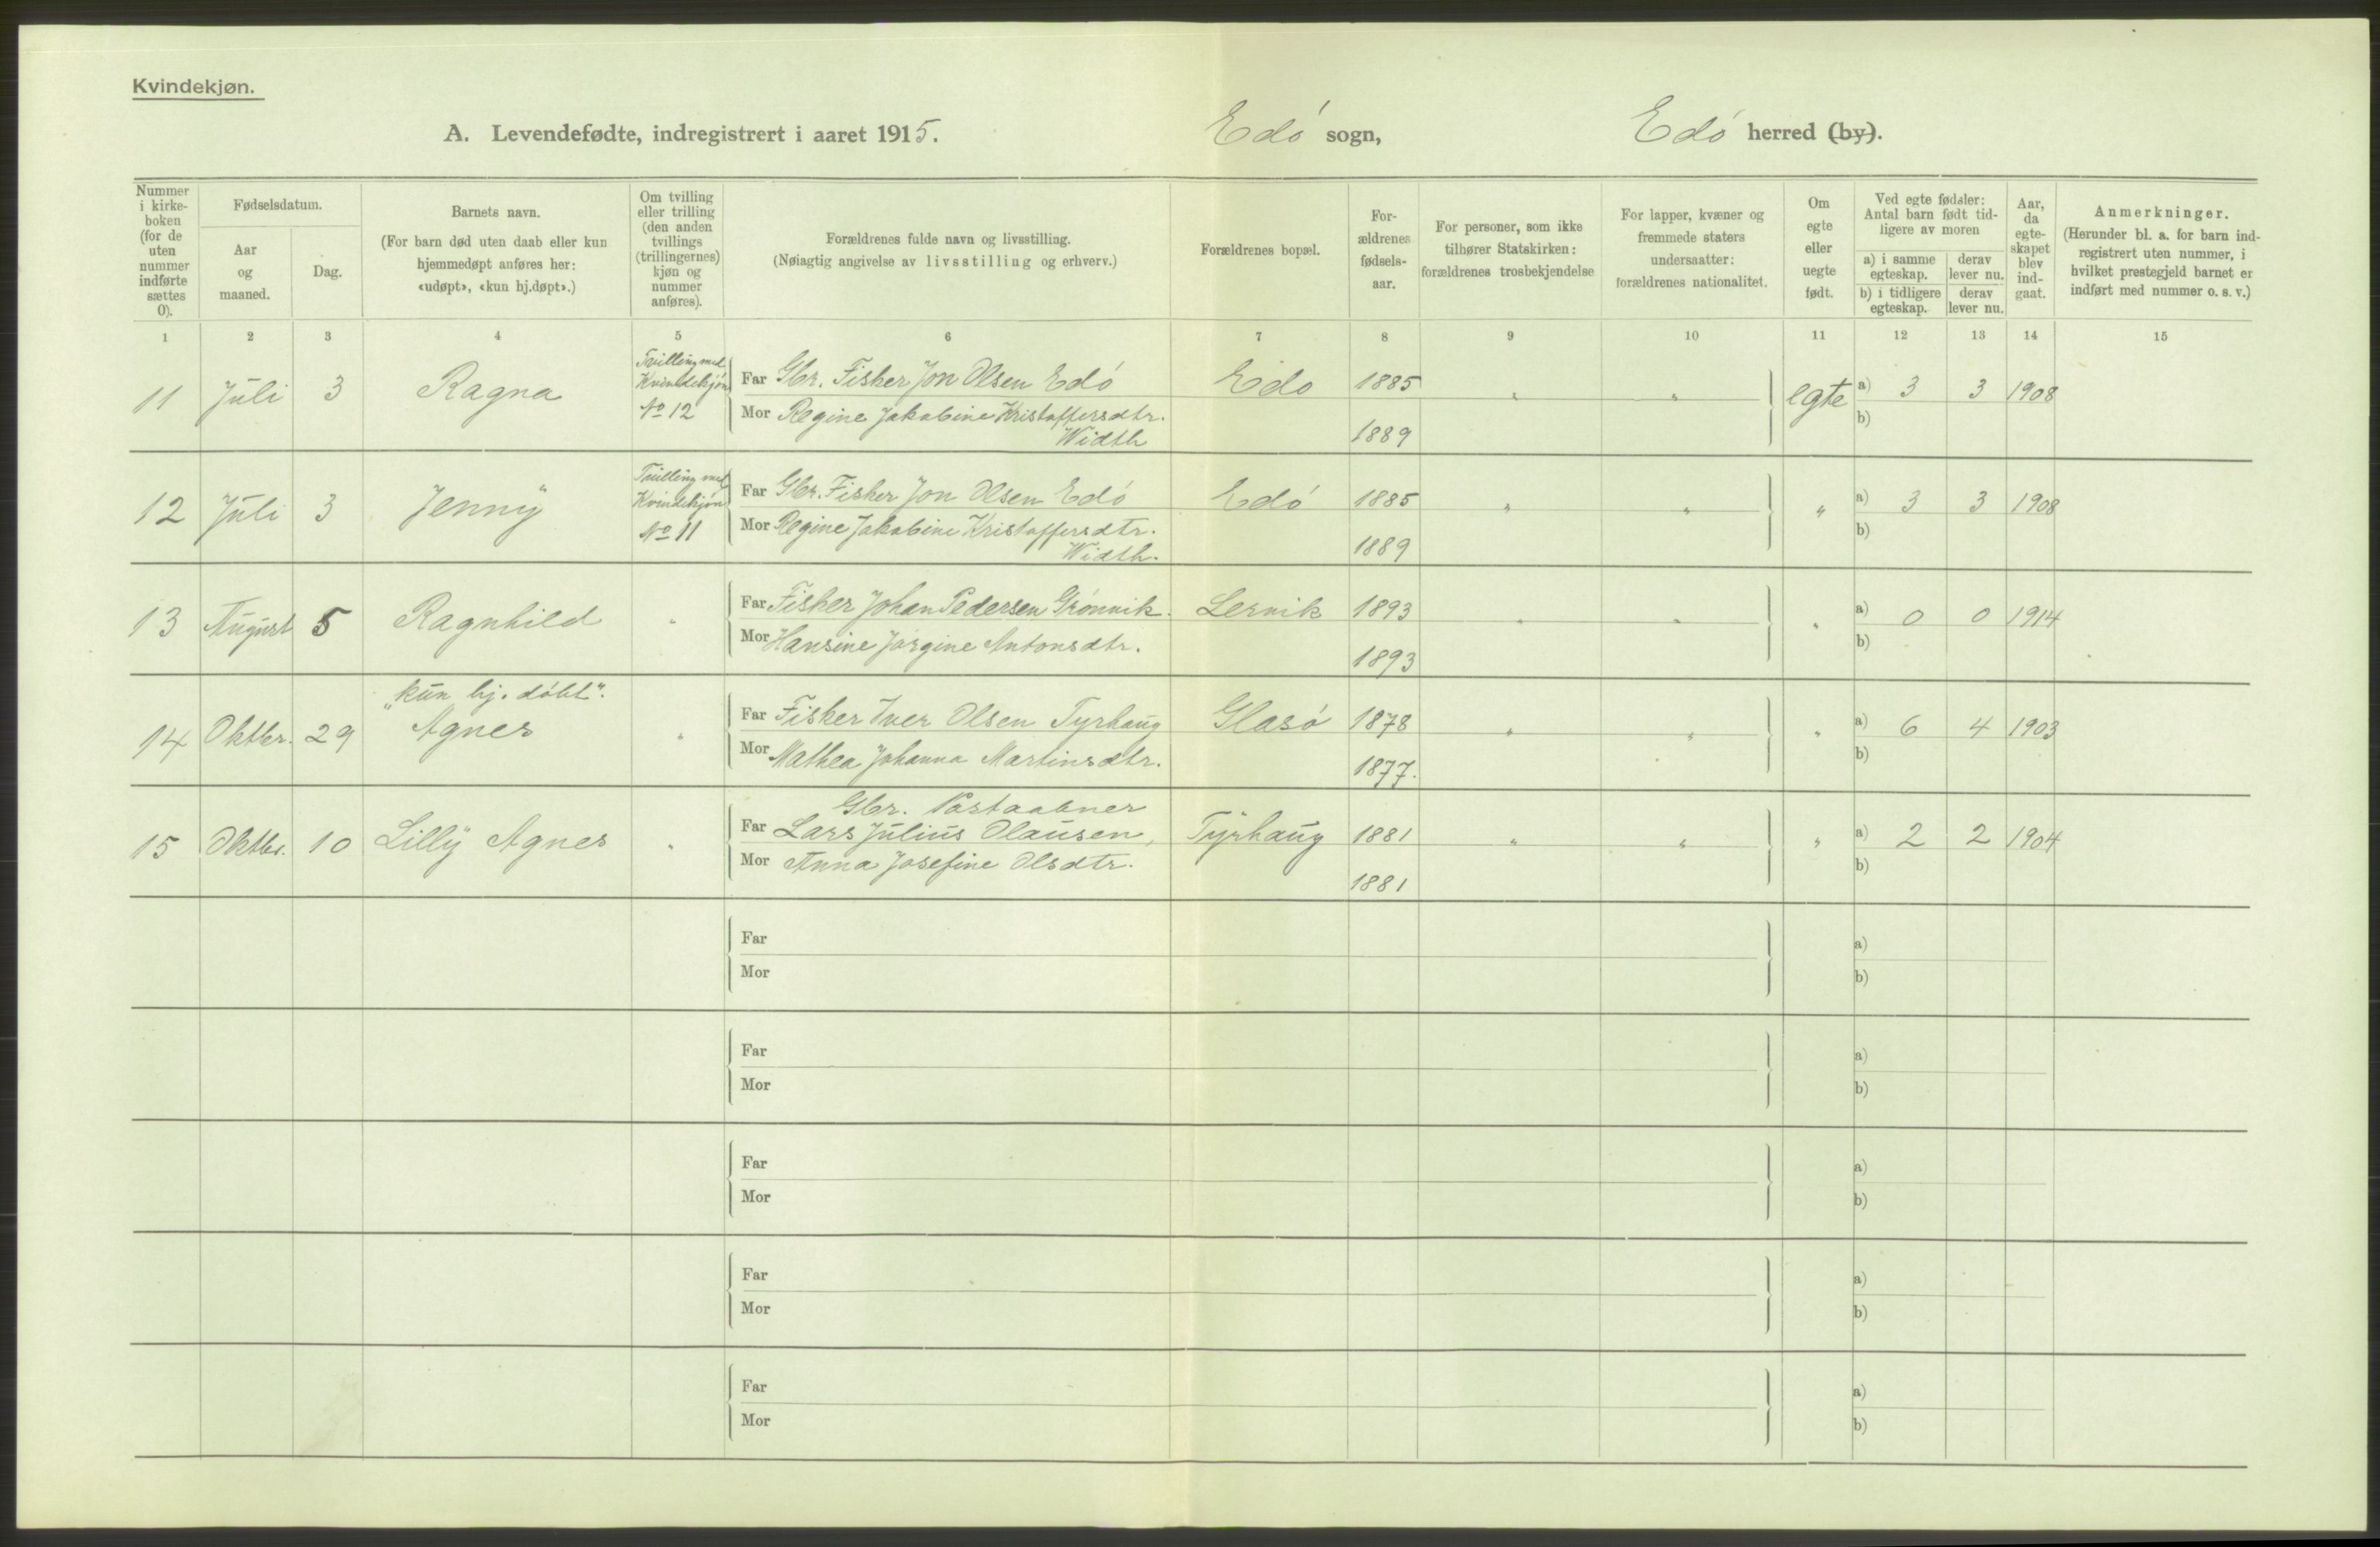 Kvindekjøn.
A. Levendefødte, indregistrert i aaret 1915. Edö sogn, Edö herred (by).
Nummer i kirke- boken (for de uten nummer indførte sættes 0).
Fødselsdatum.
Aar og maaned.
Dag.
Barnets navn.
(For barn død uten daab eller kun hjemmedøpt anføres her: «udøpt», «kun hj.døpt».)
Om tvilling eller trilling (den anden tvillings (trillingernes) kjøn og nummer anføres).
Forældrenes fulde navn og livsstilling.
(Nøiagtig angivelse av livsstilling og erhverv.)
Forældrenes bopæl.
For- ældrenes fødsels- aar.
For personer, som ikke tilhører Statskirken: forældrenes trosbekjendelse
For lapper, kvæner og fremmede staters undersaatter: forældrenes nationalitet.
Om egte eller uegte født.
Ved egte fødsler: Antal barn født tid- ligere av moren
a) i samme egteskap.
derav lever nu.
b) i tidligere egteskap.
derav lever nu.
Aar, da egte- skapet blev ind- gaat.
Anmerkninger.
(Herunder bl. a. for barn ind- registrert uten nummer, i hvilket prestegjeld barnet er indført med nummer o. s. v.)
1 2 3 4 5 6 7 8 9 10 11 12 13 14 15
11 Juli 3 Ragna
Tvilling med
Kvindekjøn
No 12
Far Gbr. Fisker Jon Olsen Edö Edö 1885 " " egte a) 3 3 1908
Mor Regine Jakobine Kristoffersdtr.
Width 1889 b)
12 Juli 3 Jenny
Tvilling med
Kvindekjøn
No 11
Far Gbr. Fisker Jon Olsen Edö Edö 1885 " " " a) 3 3 1908
Mor Regine Jakobine Kristoffersdtr.
Width. 1889 b)
13 August 5 Ragnhild "
Far Fisker Johan Pedersen Grönnvik. Lervik 1893 " " " a) 0 0 1914
Mor Hansine Jörgine Antonsdtr. 1893 b)
14 Oktbr. 29
"kun hj. döbt".
Agnes "
Far Fisker Iver Olsen Tyrhaug Glasö 1878 " " " a) 6 4 1903
Mor Mathea Johanna Martinsdtr. 1877. b)
15 Oktbr. 10 Lilly Agnes "
Gbr. Postaabner
Far Lars Julius Olausen, Tyrhaug 1881 " " " a) 2 2 1904
Mor Anna Josefine Olsdtr. 1881 b)
Far a)
Mor b)
Far a)
Mor b)
Far a)
Mor b)
Far a)
Mor b)
Far a)
Mor b)